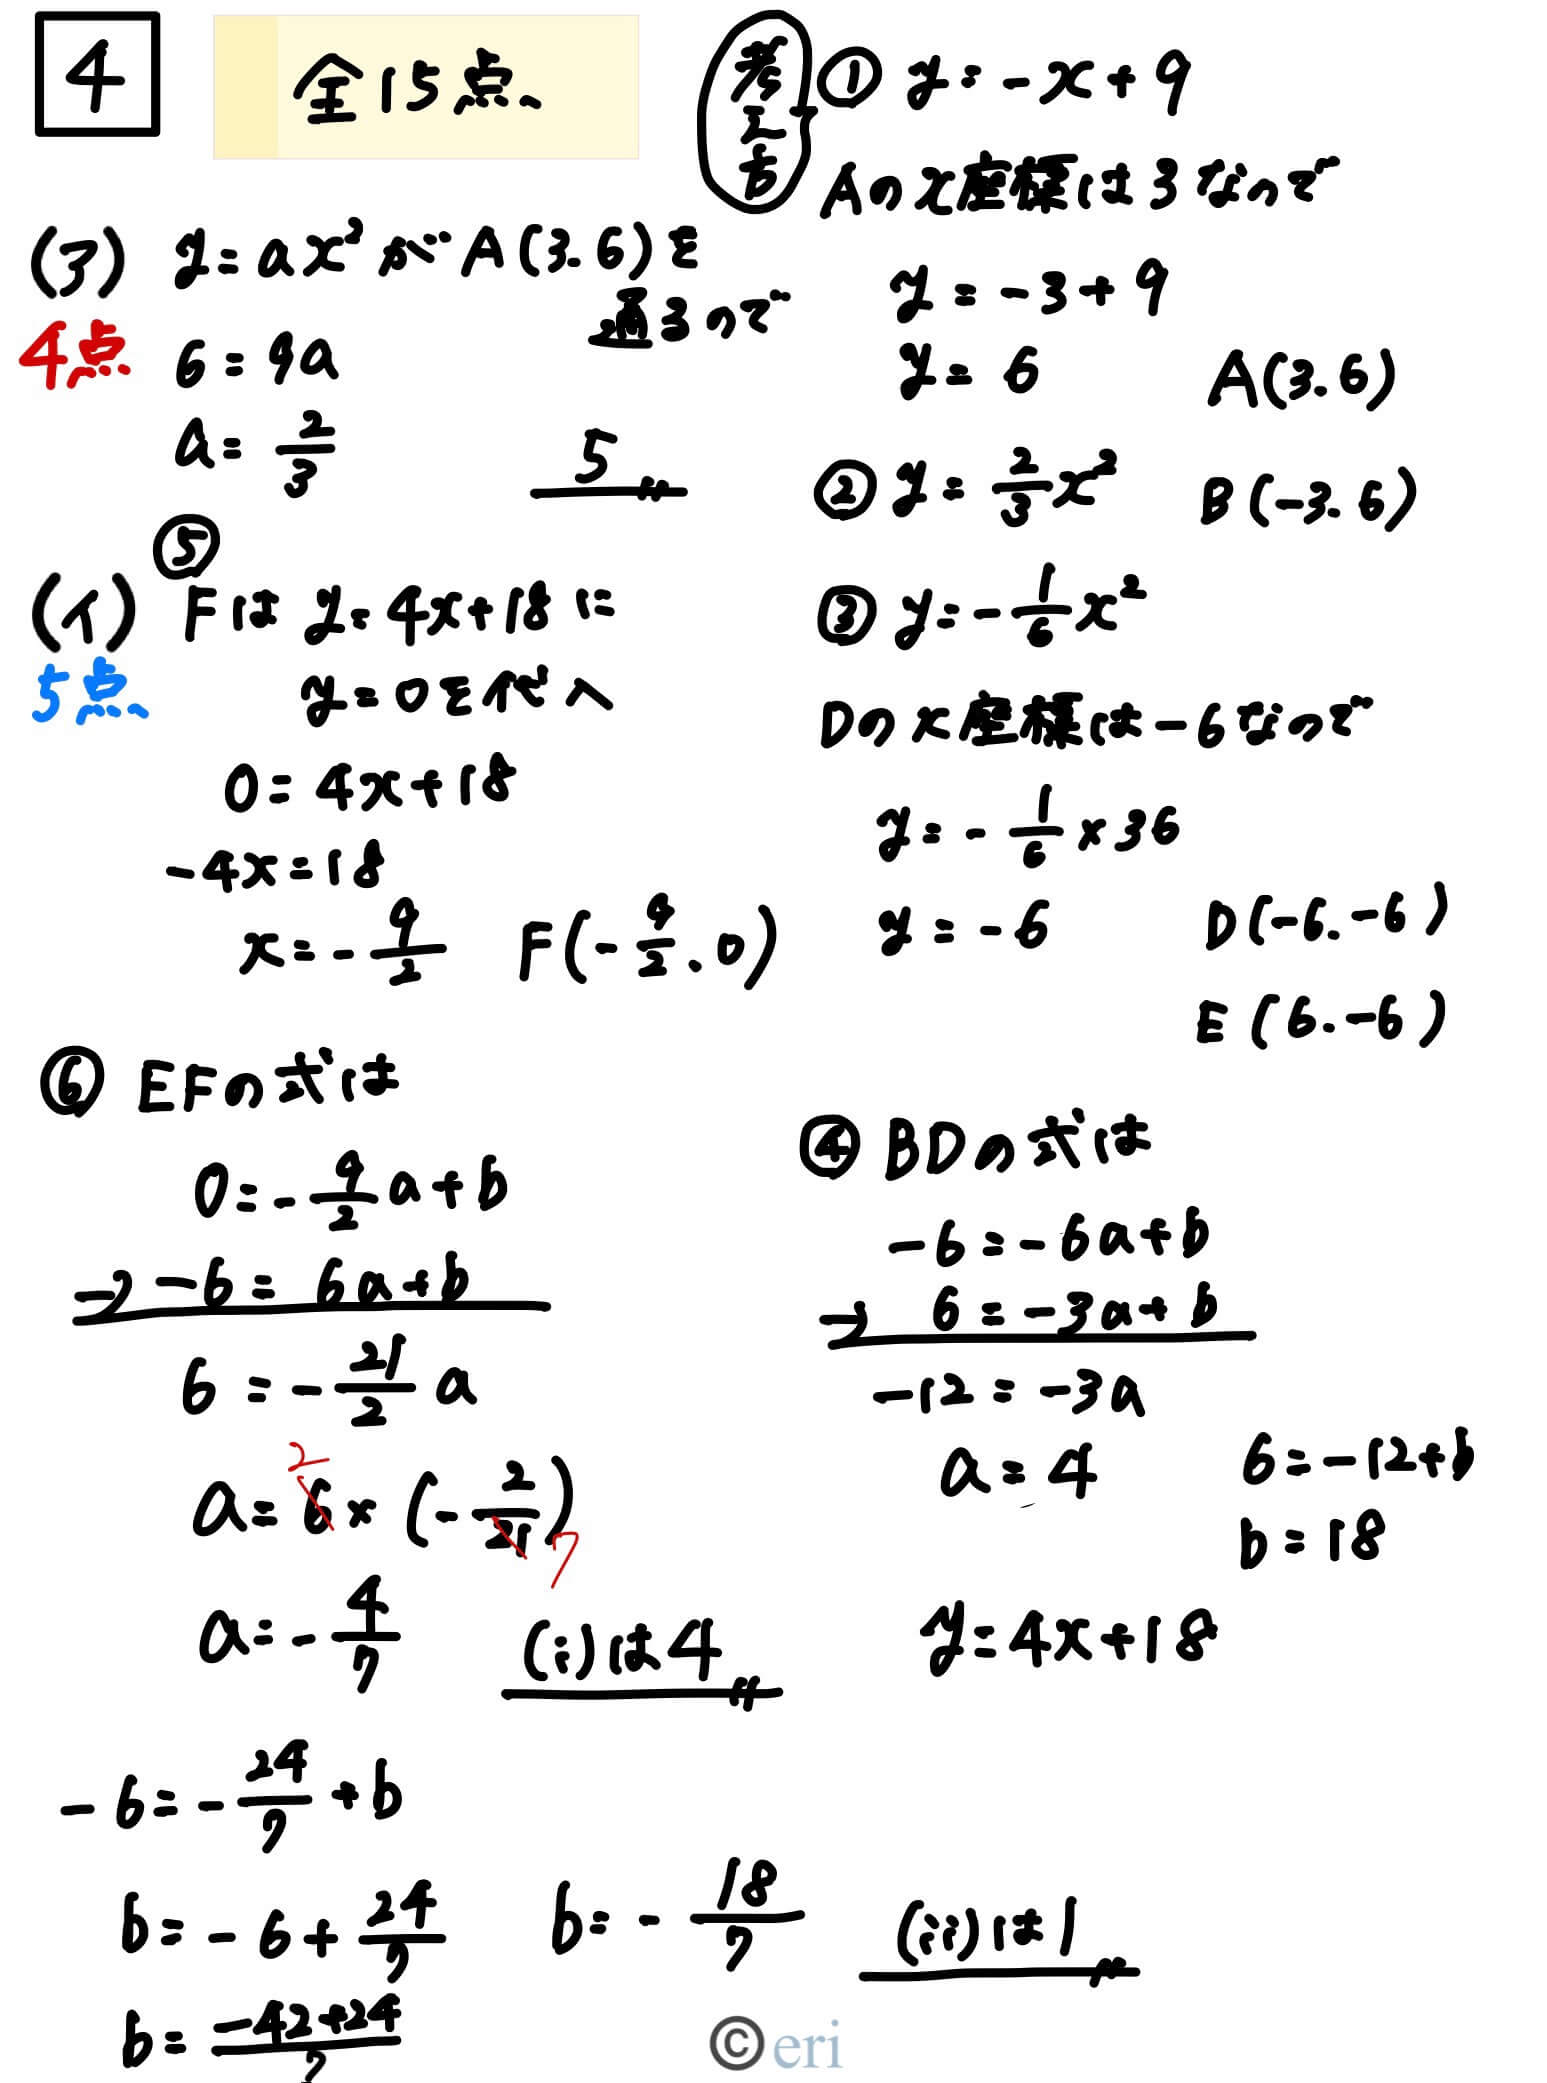 4
全15点、
(ア) y=ax²がA(3.6)を
通るので
4点
6=9a
a=2/3
5〃
(イ) ⑤
Fは y=4x+18に
5点、
y=0を代入
0=4x+18
-4x=18
x=-9/2 F(-9/2.0)
⑥ EFの式は
0=-9/2a+b
-) -6= 6a+b
6=-21/2 a
a=6×(-2/21)
2
7
a=-4/7 (i)は4〃
-6=-24/7+b
b=-6+24/7 b=-18/7 (ii)は1〃
b=-42+24/7
考え方
① y=-x+9
Aのx座標は3なので
y=-3+9
y=6 A(3.6)
② y=2/3x² B(-3.6)
③ y=-1/6x²
Dのx座標は-6なので
y=-1/6×36
y=-6 D(-6.-6)
E(6.-6)
④ BDの式は
-6=-6a+b
-) 6=-3a+b
-12=-3a
a=4 6=-12+b
b=18
y=4x+18
© eri